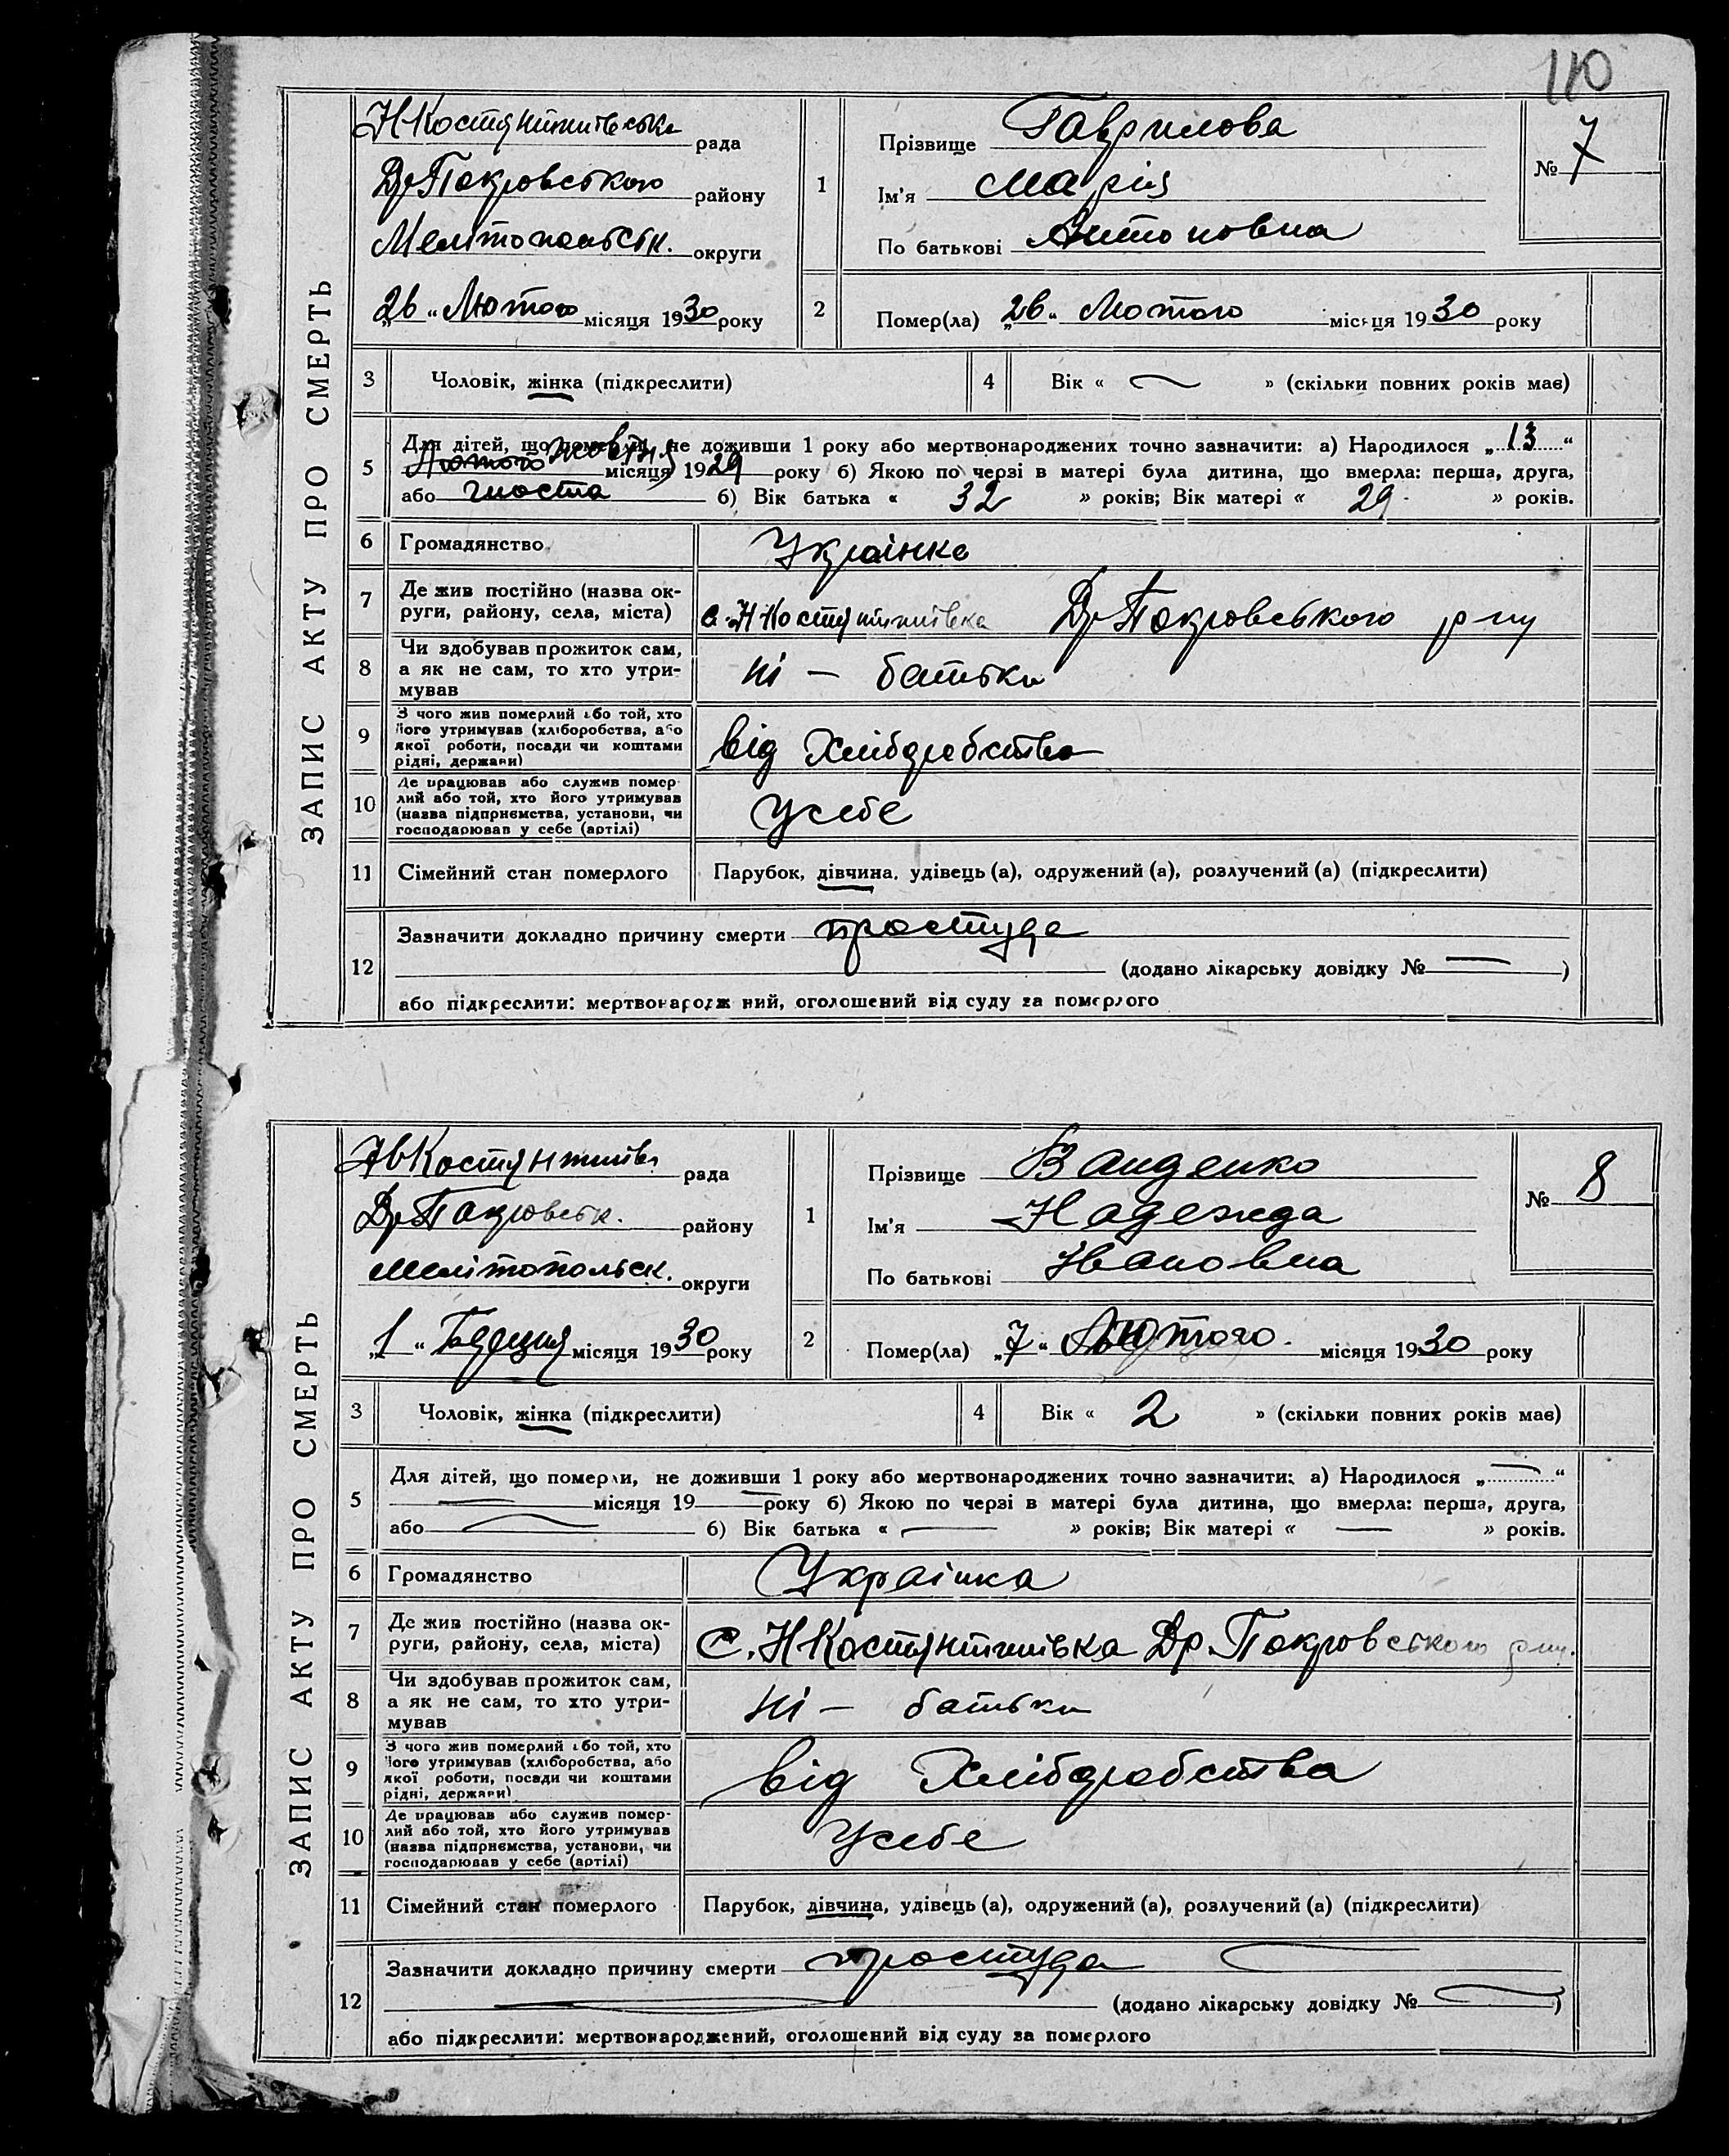 110
ЗАПИС АКТУ ПРО СМЕРТЬ
НКостянтинівська рада
Др Покровського району
Мелітопольськ. округи
„26“ Лютого місяця 1930 року
1
Прізвище Гаврилова
Ім'я Марія
По батькові Антоновна
№ 7
2
Помер(ла) „26“ Лютого місяця 1930 року
3 Чоловік, жінка (підкреслити)
4 Вік « — » (скільки повних років має)
5 Для дітей, що померли, не доживши 1 року або мертвонароджених точно зазначити: а) Народилося „13“
Лютого жовтня місяця 1929 року б) Якою по черзі в матері була дитина, що вмерла: перша, друга,
або шоста б) Вік батька « 32 » років; Вік матері « 29 » років.
6 Громадянство Українка
7 Де жив постійно (назва округи, району, села, міста) с. НКостянтинівка Др Покровського р-ну
8 Чи здобував прожиток сам,
а як не сам, то хто утри-
мував
ні — батьки
9 З чого жив померлий або той, хто
його утримував (хліборобства, або
якої роботи, посади чи коштами
рідні, держави)
від Хліборобства
10 Де працював або служив помер-
лий або той, хто його утримував
(назва підприємства, установи, чи
господарював у себе (артілі)
Усебе
11 Сімейний стан померлого Парубок, дівчина, удівець (а), одружений (а), розлучений (а) (підкреслити)
12 Зазначити докладно причину смерти простуда
(додано лікарську довідку № — )
або підкреслити: мертвонароджений, оголошений від суду за померлого
ЗАПИС АКТУ ПРО СМЕРТЬ
НвКостянтинів. рада
Др Покровськ. району
Мелітопольськ. округи
„1“ Березня місяця 1930 року
1
Прізвище
Ім'я Надежда
По батькові Івановна
№ 8
2
Помер(ла) „7“ Лютого місяця 1930 року
3 Чоловік, жінка (підкреслити)
4 Вік « 2 » (скільки повних років має)
5 Для дітей, що померли, не доживши 1 року або мертвонароджених точно зазначити: а) Народилося „—“
— місяця 19— року б) Якою по черзі в матері була дитина, що вмерла: перша, друга,
або — б) Вік батька « — » років; Вік матері « — » років.
6 Громадянство Українка
7 Де жив постійно (назва ок-
руги, району, села, міста)
С. НКостянтинівка Др. Покровського р-ну.
8 Чи здобував прожиток сам,
а як не сам, то хто утри-
мував
ні — батьки
9 З чого жив померлий або той, хто
його утримував (хліборобства, або
якої роботи, посади чи коштами
рідні, держави)
від Хліборобства
10 Де працював або служив помер-
лий або той, хто його утримував
(назва підприємства, установи, чи
господарював у себе (артілі)
Усебе
11 Сімейний стан померлого Парубок, дівчина, удівець (а), одружений (а), розлучений (а) (підкреслити)
12 Зазначити докладно причину смерти простуда
(додано лікарську довідку № — )
або підкреслити: мертвонароджений, оголошений від суду за померлого